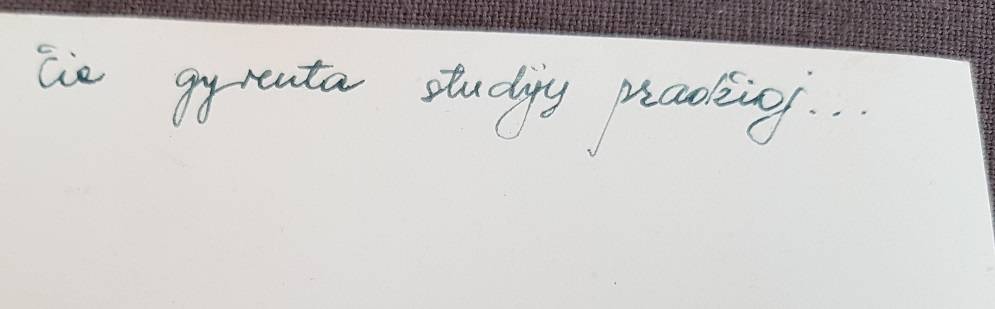 čia gyventa studijų pradžioj...